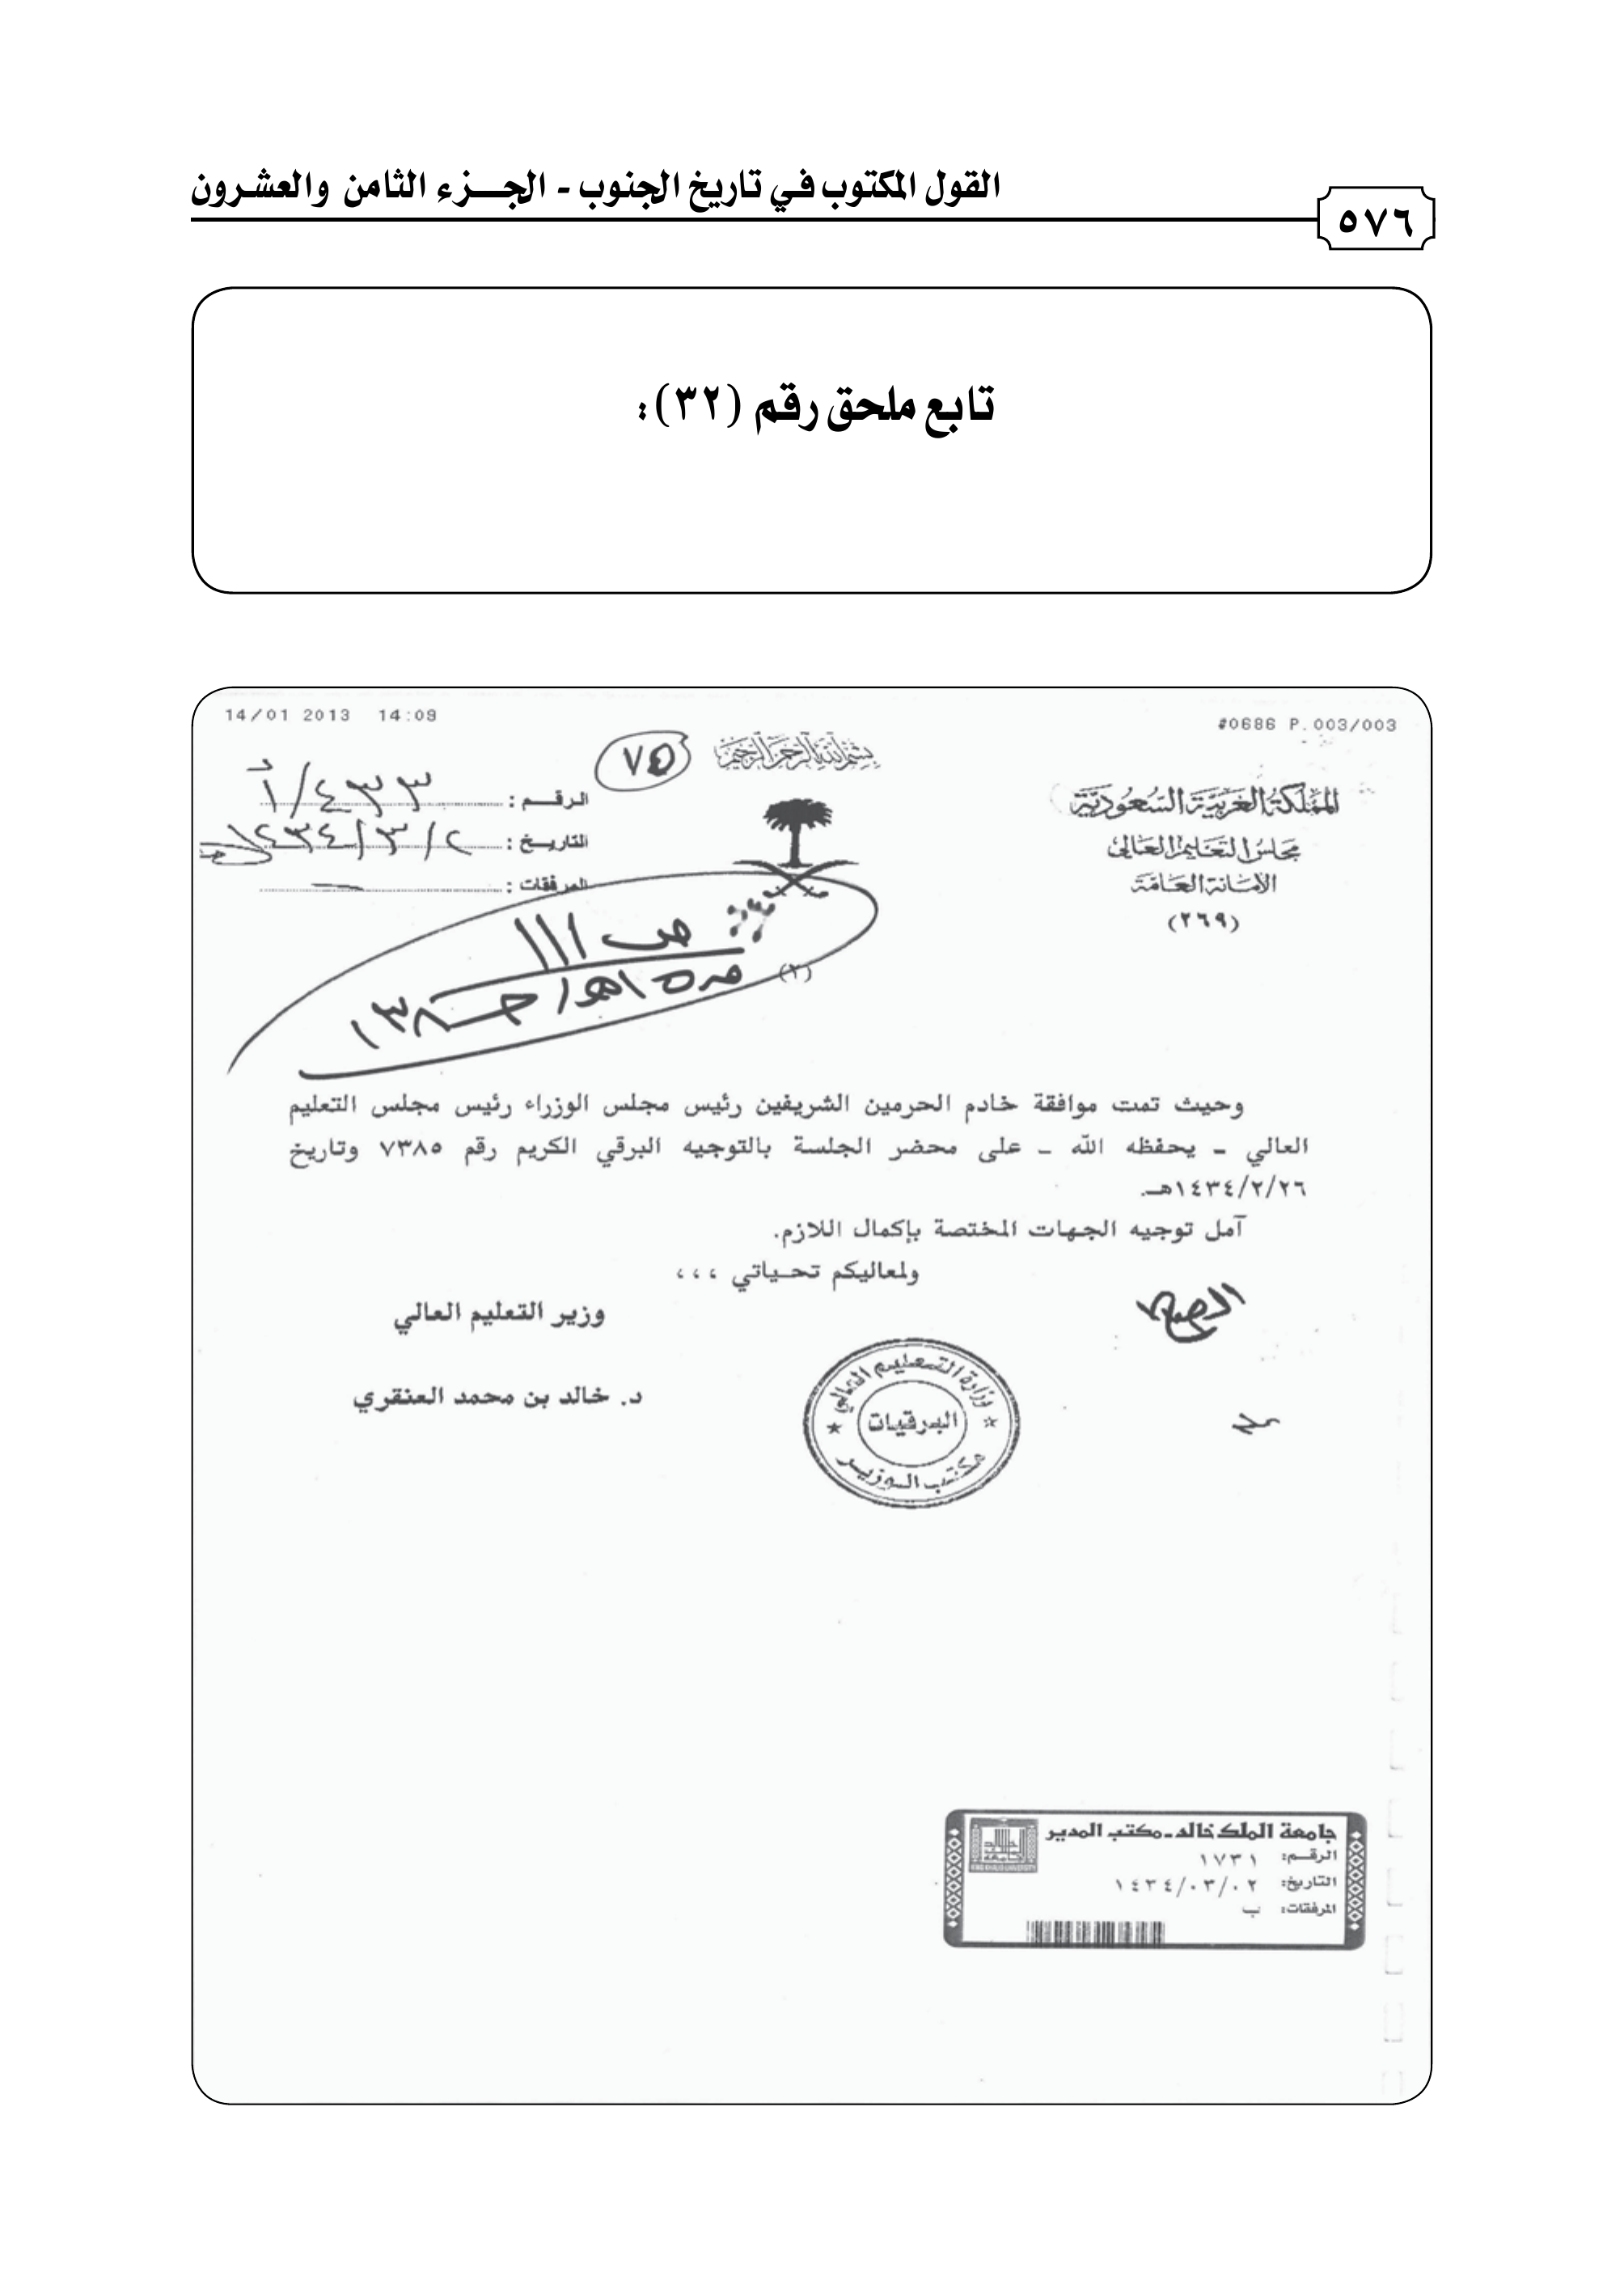 القول المكتوب في تاريخ الجنوب - الجزء الثامن والعشرون
٥٧٦
تابع ملحق رقم (٣٢):
14/01 2013 14:09
#0686 P.003/003
بسم الله الرحمن الرحيم
٧٥
المملكة العربية السعودية
مجلس التعليم العالي
الأمانة العامة
(٢٦٩)
الرقم :
التاريخ : ١٤٣٤/٣/٢
المرفقات :
ص ١١١
(٢)
وحيث تمت موافقة خادم الحرمين الشريفين رئيس مجلس الوزراء رئيس مجلس التعليم
العالي - يحفظه الله - على محضر الجلسة بالتوجيه البرقي الكريم رقم ٧٣٨٥ وتاريخ
١٤٣٤/٢/٢٦هـ.
آمل توجيه الجهات المختصة بإكمال اللازم.
ولمعاليكم تحياتي ،،،
وزير التعليم العالي
د. خالد بن محمد العنقري
وزارة التعليم العالي
البرقيات
مكتب الوزير
جامعة الملك خالد - مكتب المدير
الرقم: ١٧٣١
التاريخ: ١٤٣٤/٠٣/٠٢
المرفقات: ب
KING KHALID UNIVERSITY